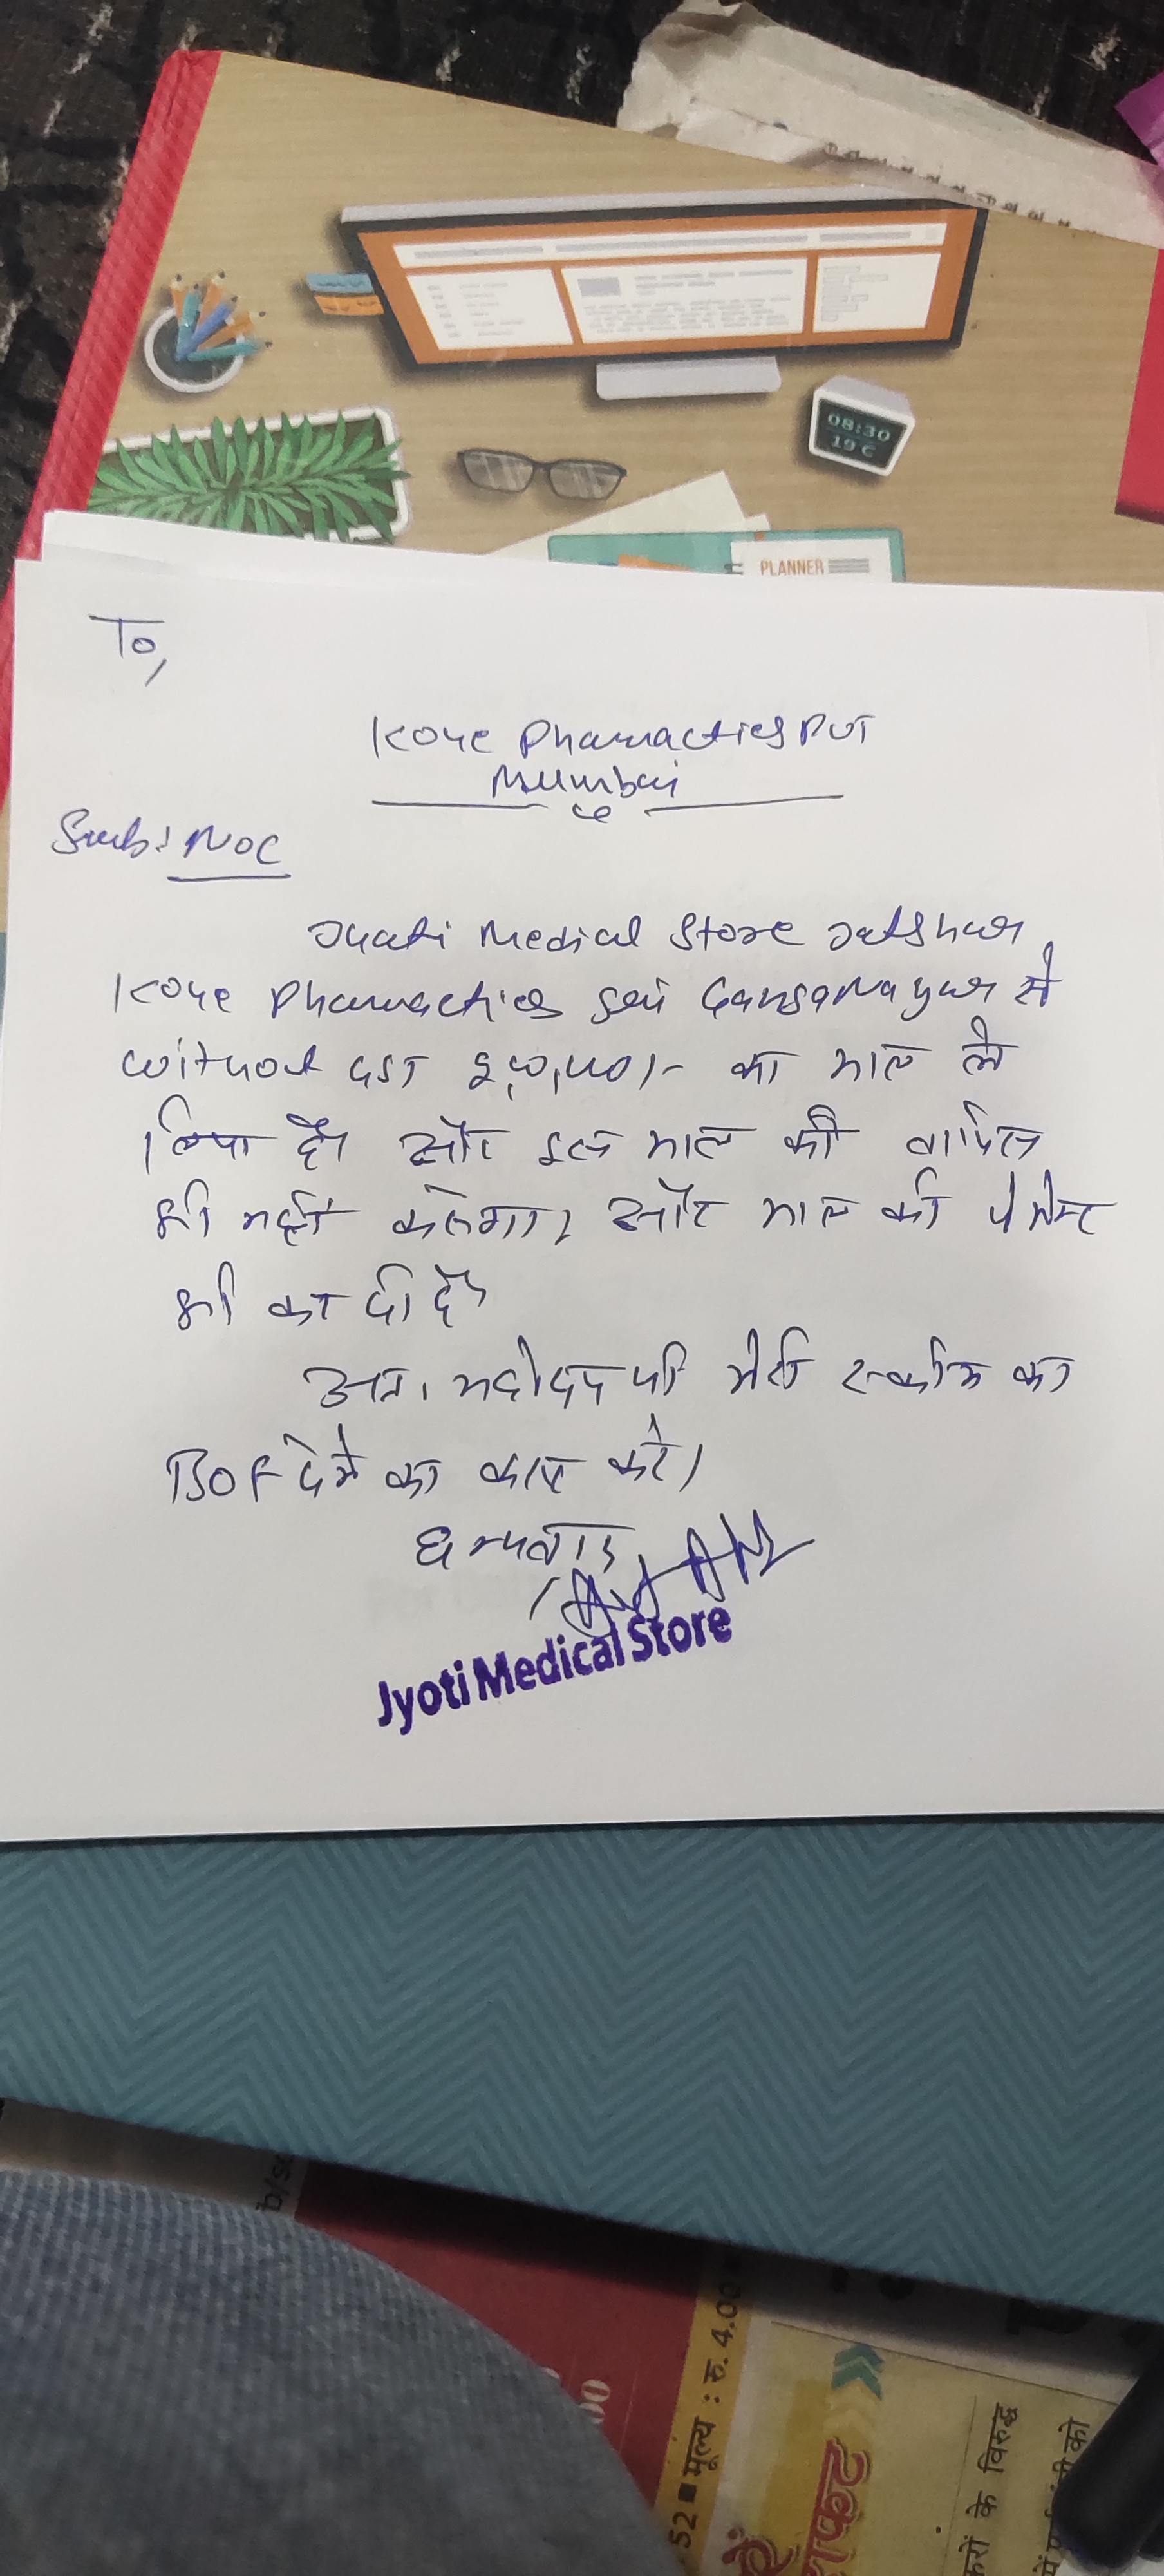 08:30
19 C
PLANNER
To,
Koye Pharmacties Pvt
Mumbai
Sub: NOC
Jyoti Medical Store
Koye Pharmacties Sri Ganganagar से
without GST का माल ले
लिया है। और इस माल को वापिस
भी नहीं करेगा, और माल की पेमेन्ट
भी कर दी है
अतः महोदय जी मेरी स्कीम का
देने का कष्ट करे।
धन्यवाद
Jyoti Medical Store
52 ■ मूल्य : रु. 4.00
करों के विरुद्ध